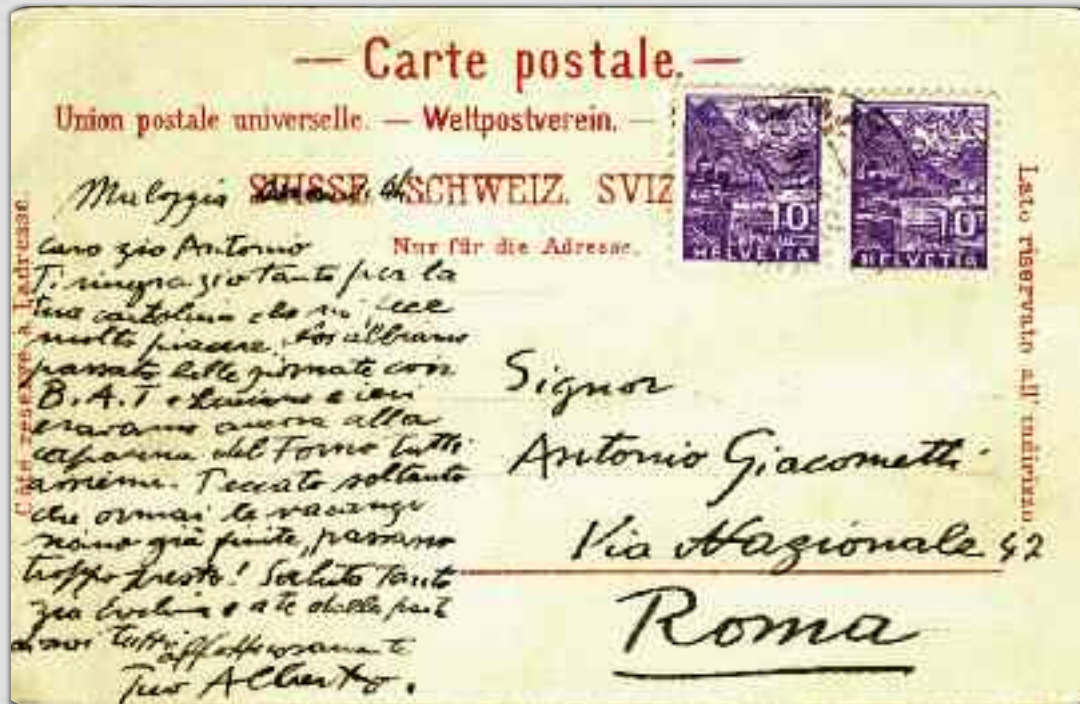 — Carte postale. —
Union postale universelle. — Weltpostverein. —
SUISSE. SCHWEIZ. SVIZ
Nur für die Adresse.
Côté réservé à l'adresse.
Lato riservato all' indirizzo.
10
HELVETIA
10
HELVETIA
Maloggia
caro zio Antonio
Ti ringrazio tanto per la
tua cartolina che mi fece
molto piacere. Noi abbiamo
passato belle giornate con
B.A.T e Luciano e ieri
eravamo ancora alla
capanna del Forno tutti
assieme. Peccato soltanto
che ormai le vacanze
siano già finite, passano
troppo presto! Saluto tanto
zia Evelina e a te dalla part
di noi tutti affettuosamente
Tuo Alberto.
Signor
Antonio Giacometti
Via Nazionale 42
Roma